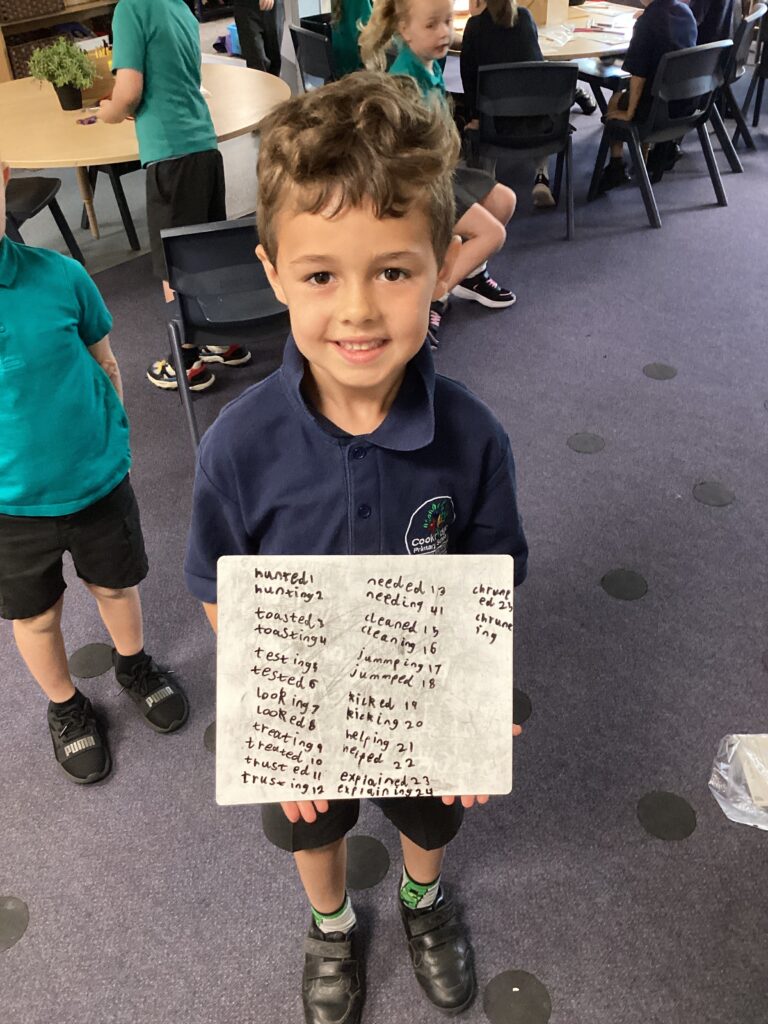 hunted 1
hunting 2
toasted 3
toasting 4
testing 5
tested 6
looking 7
looked 8
treating 9
treated 10
trusted 11
trusting 12
needed 13
needing 41
cleaned 15
cleaning 16
jummping 17
jummped 18
kicked 19
kicking 20
helping 21
helped 22
explained 23
explaining 24
chrune
ed 25
chrune
ing
Primary
PUMA
PUMA